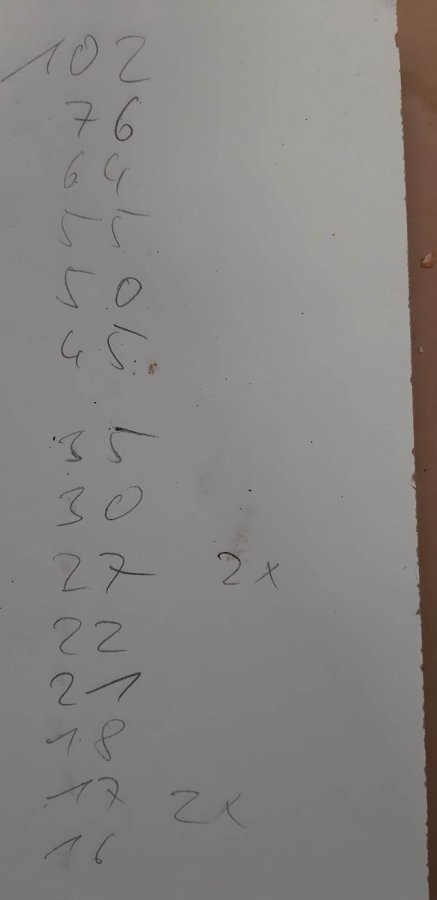 102
76
64
55
50
45
35
30
27 2x
22
21
18
17 2x
16